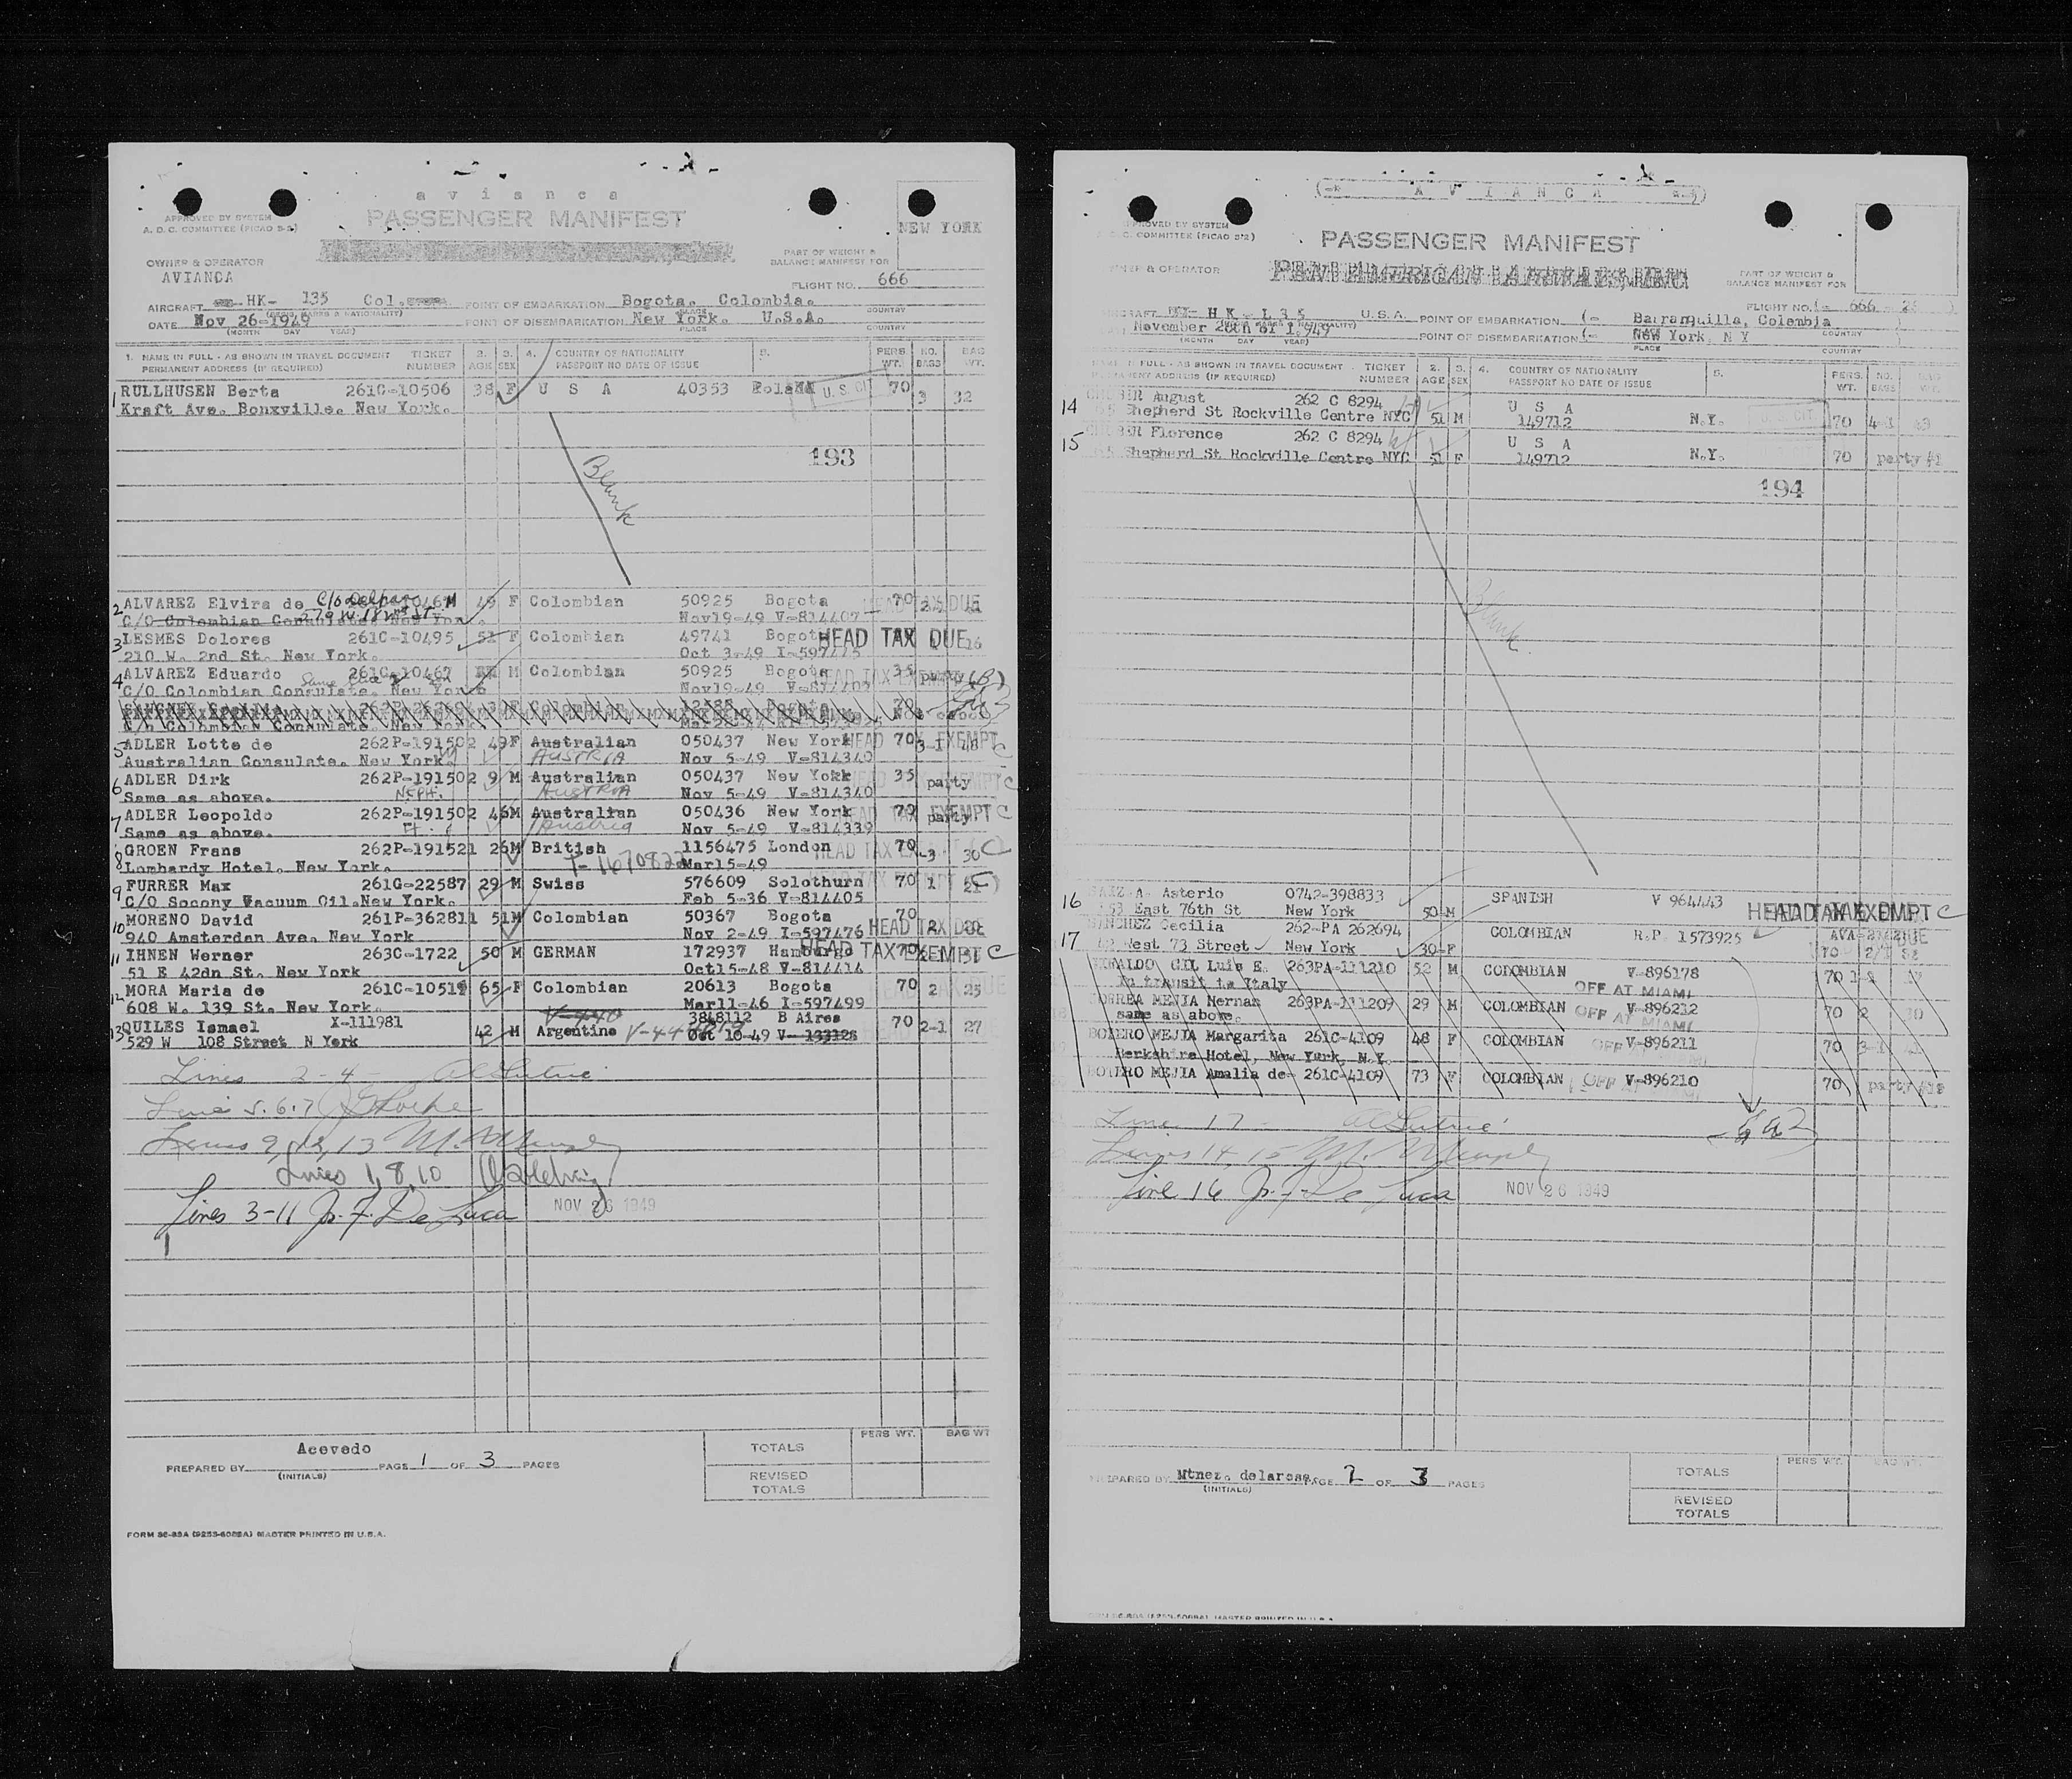 avianca
PASSENGER MANIFEST
APPROVED BY SYSTEM
A. O. C. COMMITTEE (PICAO 5-2)
NEW YORK
PART OF WEIGHT &
BALANCE MANIFEST FOR
OWNER & OPERATOR
AVIANCA
FLIGHT NO. 666
AIRCRAFT HK- 135 Col. POINT OF EMBARKATION Bogota. Colombia.
DATE Nov 26-1949 POINT OF DISEMBARKATION New York. U.S.A.
(MONTH DAY YEAR) PLACE COUNTRY
1. NAME IN FULL - AS SHOWN IN TRAVEL DOCUMENT TICKET 2. 3. 4. COUNTRY OF NATIONALITY 5. PERS. NO. BAG
PERMANENT ADDRESS (IF REQUIRED) NUMBER AGE SEX PASSPORT NO DATE OF ISSUE WT. BAGS WT.
1 RULLHUSEN Berta 261C-10506 38 F U S A 40353 U.S. CIT 70 3 32
Kraft Ave. Bonxville. New York.
193
Blank
2 ALVAREZ Elvira de C/O 49 F Colombian 50925 Bogota 70 HEAD TAX DUE
C/O Colombian Consulate. New York. Nov19-49 V-814407
3 LESMES Dolores 261C-10495 51 F Colombian 49741 Bogota HEAD TAX DUE
210 W. 2nd St. New York. Oct 3-49 I-597475
4 ALVAREZ Eduardo 261C-10467 M Colombian 50925 Bogota 35 party
C/O Colombian Consulate. New York Nov19-49
5 ADLER Lotte de 262P-191502 49 F Australian 050437 New York 70 3-1 48 HEAD TAX EXEMPT C
Australian Consulate. New York. AUSTRIA Nov 5-49 V-814340
6 ADLER Dirk 262P-191502 9 M Australian 050437 New Yokk 35 party C
Same as above. NEPH. AUSTRIA Nov 5-49 V-814340
7 ADLER Leopoldo 262P-191502 46 M Australian 050436 New York 70 party HEAD TAX EXEMPT C
Same as above. Austria Nov 5-49 V-814339
8 GROEN Frans 262P-191521 26 M British 1156475 London 70 -3 30 C
Lombardy Hotel. New York. Mar15-49
9 FURRER Max 261G-22587 29 M Swiss 576609 Solothurn 70 1
C/O Socony Vacuum Oil.New York. Feb 5-36 V-814405
10 MORENO David 261P-362811 51 M Colombian 50367 Bogota 70 HEAD TAX DUE
940 Amsterdan Ave. New York Nov 2-49 I-597476
11 IHNEN Werner 263C-1722 50 M GERMAN 172937 Hamburgo 70 HEAD TAX EXEMPT C
51 E 42dn St. New York Oct15-48 V-814414
12 MORA Maria de 65 F Colombian 20613 Bogota 70 2 25
608 W. 139 St. New York. Mar11-46 I-597499
13 QUILES Ismael X-111981 42 M Argentine 3848112 B Aires 70 2-1 27
529 W 108 Street N York Oct 10-49
Lines 2-4
Lines 5.6.7
Lines 9, 12, 13
Lines 1, 8, 10
Lines 3-11 Jr. F. De Luca NOV 26 1949
Acevedo
PREPARED BY PAGE 1 OF 3 PAGES
(INITIALS)
PERS WT. BAG WT
TOTALS
REVISED
TOTALS
FORM
MASTER PRINTED IN U.S.A.
AVIANCA
APPROVED BY SYSTEM
COMMITTEE (PICAO 5-2)
PASSENGER MANIFEST
OWNER & OPERATOR
PAN AMERICAN AIRWAYS, INC.
PART OF WEIGHT &
BALANCE MANIFEST FOR
FLIGHT NO. (- 666
AIRCRAFT HK - 135 U.S.A. POINT OF EMBARKATION (- Barranquilla, Colombia
November POINT OF DISEMBARKATION (- New York, N Y
(MONTH DAY YEAR) PLACE COUNTRY
NAME IN FULL - AS SHOWN IN TRAVEL DOCUMENT TICKET 2. 3. 4. COUNTRY OF NATIONALITY 5. PERS. NO. BAG
PERMANENT ADDRESS (IF REQUIRED) NUMBER AGE SEX PASSPORT NO DATE OF ISSUE WT. BAGS WT.
14 August 262 C 8294 U S A
Shepherd St Rockville Centre NYC 51 M 149712 N.Y. 70
15 Florence 262 C 8294 U S A
Shepherd St Rockville Centre NYC 51 F 149712 N.Y. 70 party #1
194
Blank
16 SAIZ A. Asterio 0742-398833 SPANISH V 964443
East 76th St New York 50 M HEAD TAX EXEMPT C
17 SANCHEZ Cecilia 262-PA 262694 COLOMBIAN R.P. 1573925
West 73 Street New York 30 F 70
GIL Luis E. 263PA-111210 52 M COLOMBIAN V-896178 70
In transit to Italy OFF AT MIAMI
CORREA MENJA Hernan 263PA-111209 29 M COLOMBIAN V-896212 70 2
same as above. OFF AT MIAMI
BOTERO MEJIA Margarita 261C-4109 48 F COLOMBIAN V-896211 70
Berkshire Hotel, New York, N.Y.
BOTERO MEJIA Amalia de- 261C-4109 73 F COLOMBIAN V-896210 70 party
Line 17
Lines 14, 15
Line 16 Jr. F. De Luca NOV 26 1949
PREPARED BY Mtnez. delarosa. PAGE 2 OF 3 PAGES
(INITIALS)
PERS WT. BAG WT.
TOTALS
REVISED
TOTALS